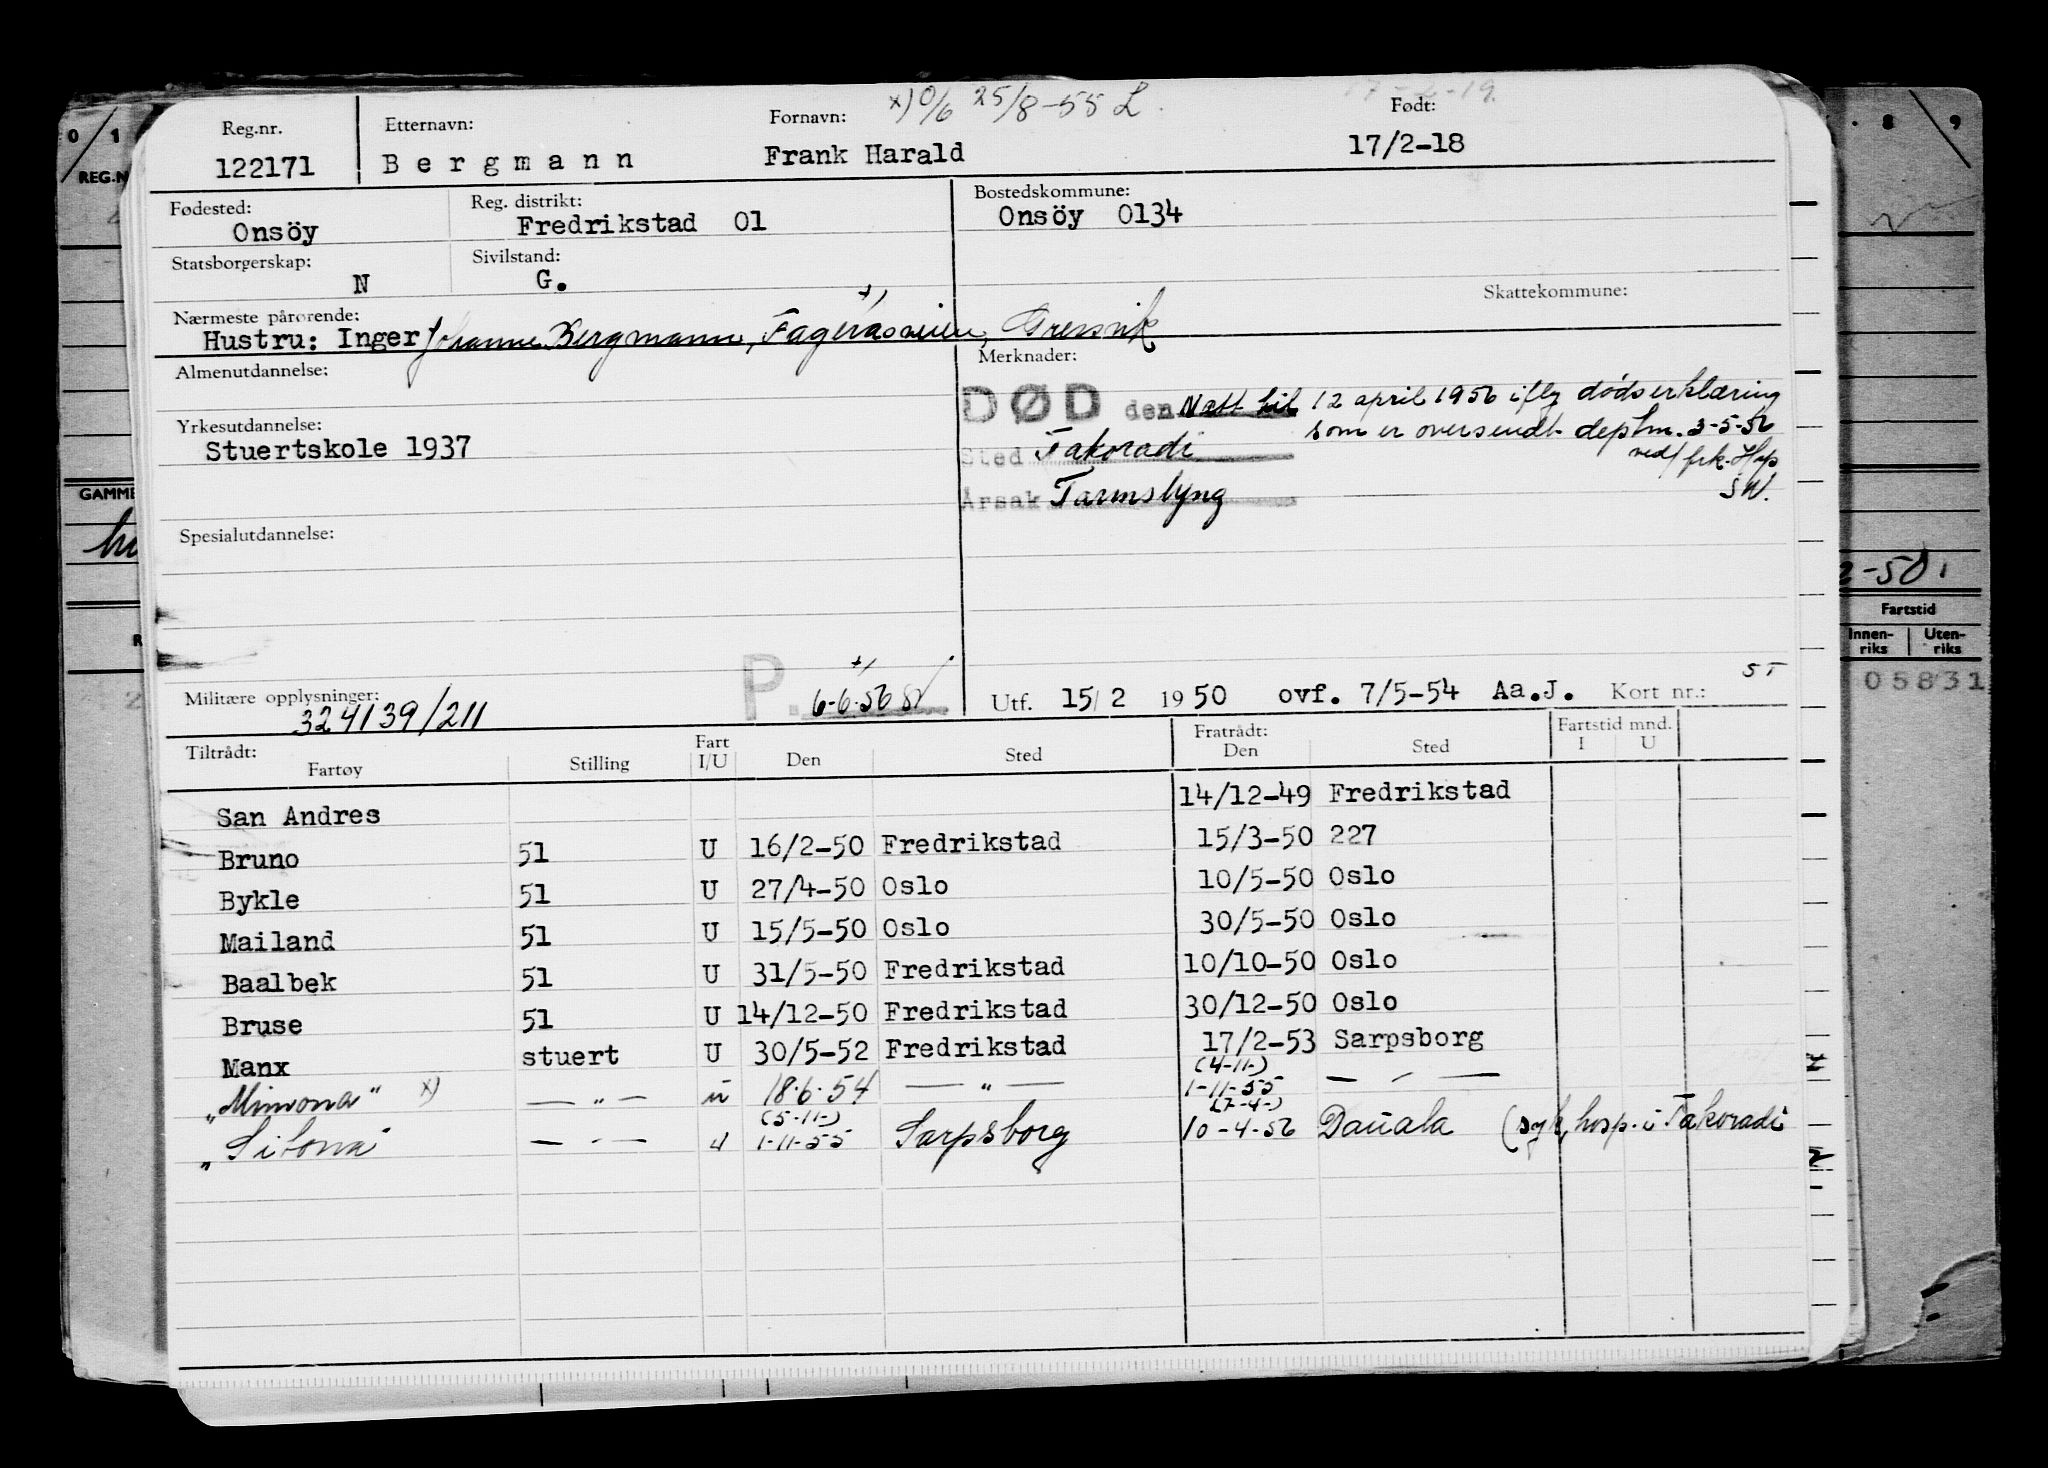 x) 0/6 25/8-55 L. 17-2-19.
Reg.nr. Etternavn: Fornavn: Født:
122171 Bergmann Frank Harald 17/2-18
Fødested: Reg. distrikt: Bostedskommune:
Onsöy Fredrikstad 01 Onsöy 0134
Statsborgerskap: Sivilstand:
N G.
Skattekommune:
Nærmeste pårørende:
Hustru: Inger Johanne Bergmann, Fageraasveien, Gressvik
Almenutdannelse: Merknader:
DØD den Natt til 12 april 1956 iflg dødserklæring
som er oversendt deptm. 3-5-56
ved/ frk. Hop
SW.
Sted Takoradi
Årsak Tarmslyng
Yrkesutdannelse:
Stuertskole 1937
Spesialutdannelse:
Militære opplysninger: P. 6-6-56
324139/211
Utf. 15/2 1950 ovf. 7/5-54 Aa.J. Kort nr.: 5T
Tiltrådt: Fratrådt: Fartstid mnd.
Fartøy Stilling Fart I/U Den Sted Den Sted I U
San Andres 14/12-49 Fredrikstad
Bruno 51 U 16/2-50 Fredrikstad 15/3-50 227
Bykle 51 U 27/4-50 Oslo 10/5-50 Oslo
Mailand 51 U 15/5-50 Oslo 30/5-50 Oslo
Baalbek 51 U 31/5-50 Fredrikstad 10/10-50 Oslo
Bruse 51 U 14/12-50 Fredrikstad 30/12-50 Oslo
Manx stuert U 30/5-52 Fredrikstad 17/2-53 Sarpsborg
(4-11-)
"Mimona" x) — " — u 18.6.54 — " — 1-11-55 — " —
(5-11-) (7-4-)
"Sitona" — " — u 1-11-55 Sarpsborg 10-4-56 Dauala (syk, hosp. i Takoradi
0/1
REG.N
GAMME
8/9
2-50.
Fartstid
Innen-riks Uten-riks
05831